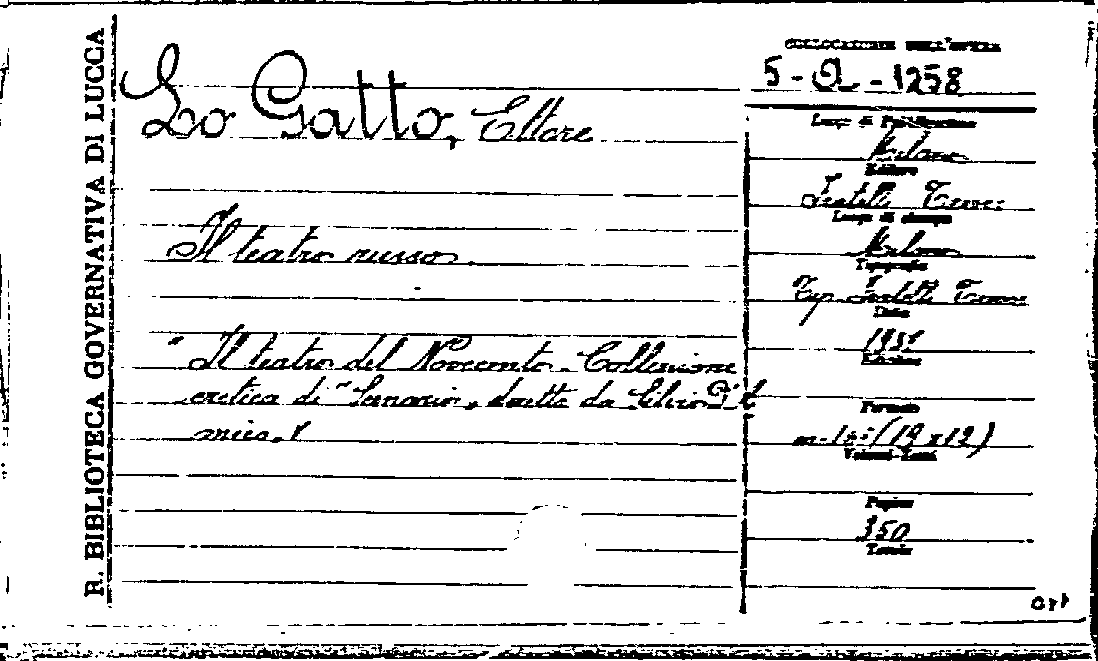 R. BIBLIOTECA GOVERNATIVA DI LUCCA
Lo Gatto, Ettore
Il teatro russo.
" Il teatro del Novecento - Collezione
critica di "Scenario" diretta da Silvio D'A
mico. 1
COLLOCAZIONE DELL'OPERA
5 - Q - 1258
Luogo di Pubblicazione
Milano
Editore
Fratelli Treves
Luogo di stampa
Milano
Tipografia
Tip. Fratelli Treves
Data
Edizione
Formato
in-16° (19x12)
Volumi-Tomi
Pagine
350
Tavole